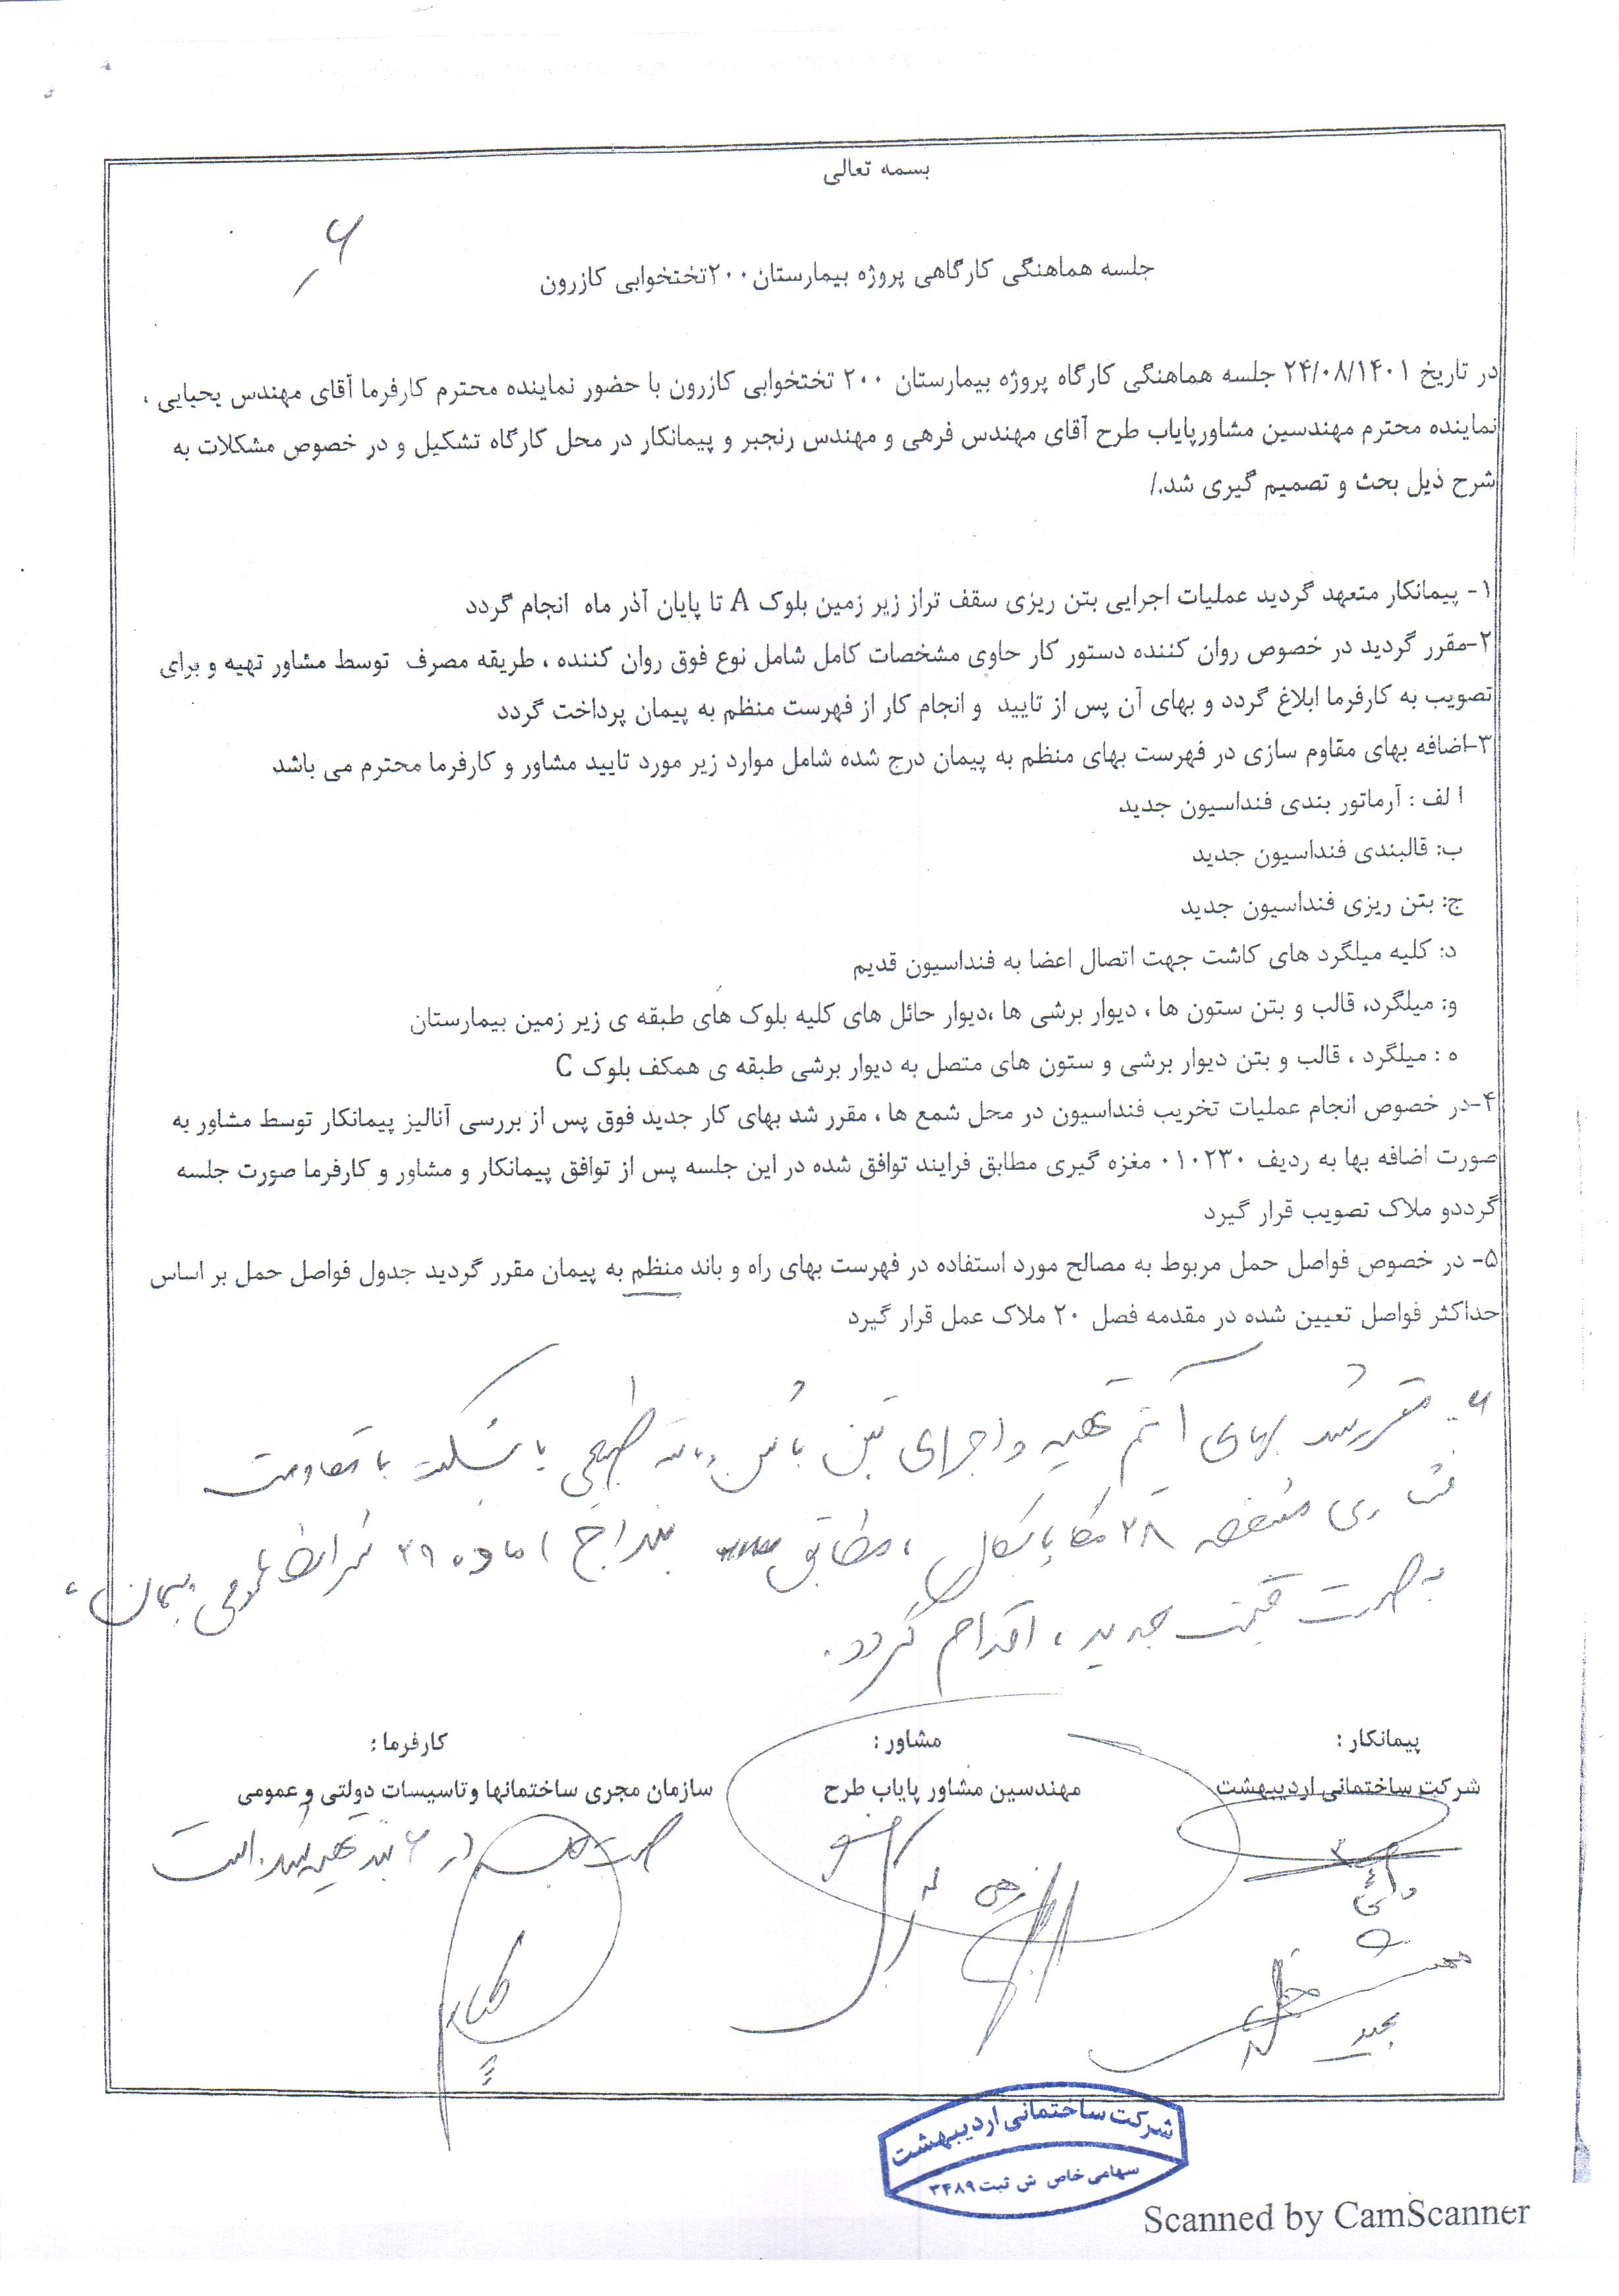 بسمه تعالی
۶
جلسه هماهنگی کارگاهی پروژه بیمارستان ۲۰۰تختخوابی کازرون
در تاریخ ۲۴/۰۸/۱۴۰۱ جلسه هماهنگی کارگاه پروژه بیمارستان ۲۰۰ تختخوابی کازرون با حضور نماینده محترم کارفرما آقای مهندس یحیایی ،
نماینده محترم مهندسین مشاورپایاب طرح آقای مهندس فرهی و مهندس رنجبر و پیمانکار در محل کارگاه تشکیل و در خصوص مشکلات به
شرح ذیل بحث و تصمیم گیری شد./
۱- پیمانکار متعهد گردید عملیات اجرایی بتن ریزی سقف تراز زیر زمین بلوک A تا پایان آذر ماه انجام گردد
۲-مقرر گردید در خصوص روان کننده دستور کار حاوی مشخصات کامل شامل نوع فوق روان کننده ، طریقه مصرف توسط مشاور تهیه و برای
تصویب به کارفرما ابلاغ گردد و بهای آن پس از تایید و انجام کار از فهرست منظم به پیمان پرداخت گردد
۳-اضافه بهای مقاوم سازی در فهرست بهای منظم به پیمان درج شده شامل موارد زیر مورد تایید مشاور و کارفرما محترم می باشد
ا لف : آرماتور بندی فنداسیون جدید
ب: قالبندی فنداسیون جدید
ج: بتن ریزی فنداسیون جدید
د: کلیه میلگرد های کاشت جهت اتصال اعضا به فنداسیون قدیم
و: میلگرد، قالب و بتن ستون ها ، دیوار برشی ها ،دیوار حائل های کلیه بلوک های طبقه ی زیر زمین بیمارستان
ه : میلگرد ، قالب و بتن دیوار برشی و ستون های متصل به دیوار برشی طبقه ی همکف بلوک C
۴-در خصوص انجام عملیات تخریب فنداسیون در محل شمع ها ، مقرر شد بهای کار جدید فوق پس از بررسی آنالیز پیمانکار توسط مشاور به
صورت اضافه بها به ردیف ۰۱۰۲۳۰ مغزه گیری مطابق فرایند توافق شده در این جلسه پس از توافق پیمانکار و مشاور و کارفرما صورت جلسه
گرددو ملاک تصویب قرار گیرد
۵- در خصوص فواصل حمل مربوط به مصالح مورد استفاده در فهرست بهای راه و باند منظم به پیمان مقرر گردید جدول فواصل حمل بر اساس
حداکثر فواصل تعیین شده در مقدمه فصل ۲۰ ملاک عمل قرار گیرد
۶- مقرر شد بهای آیتم تهیه و اجرای بتن با شن و ماسه طبیعی یا شکسته با مقاومت
فشاری مشخصه ۲۸ مگا پاسکال ، مطابق بند ج ماده ۲۹ شرایط عمومی پیمان ،
به صورت قیمت جدید ، اقدام گردد .
پیمانکار :
مشاور :
کارفرما :
شرکت ساختمانی اردیبهشت
مهندسین مشاور پایاب طرح
سازمان مجری ساختمانها وتاسیسات دولتی و عمومی
صورت جلسه در ۶ بند تهیه شده است
شرکت ساختمانی اردیبهشت
سهامی خاص ش ثبت ۳۴۸۹
Scanned by CamScanner